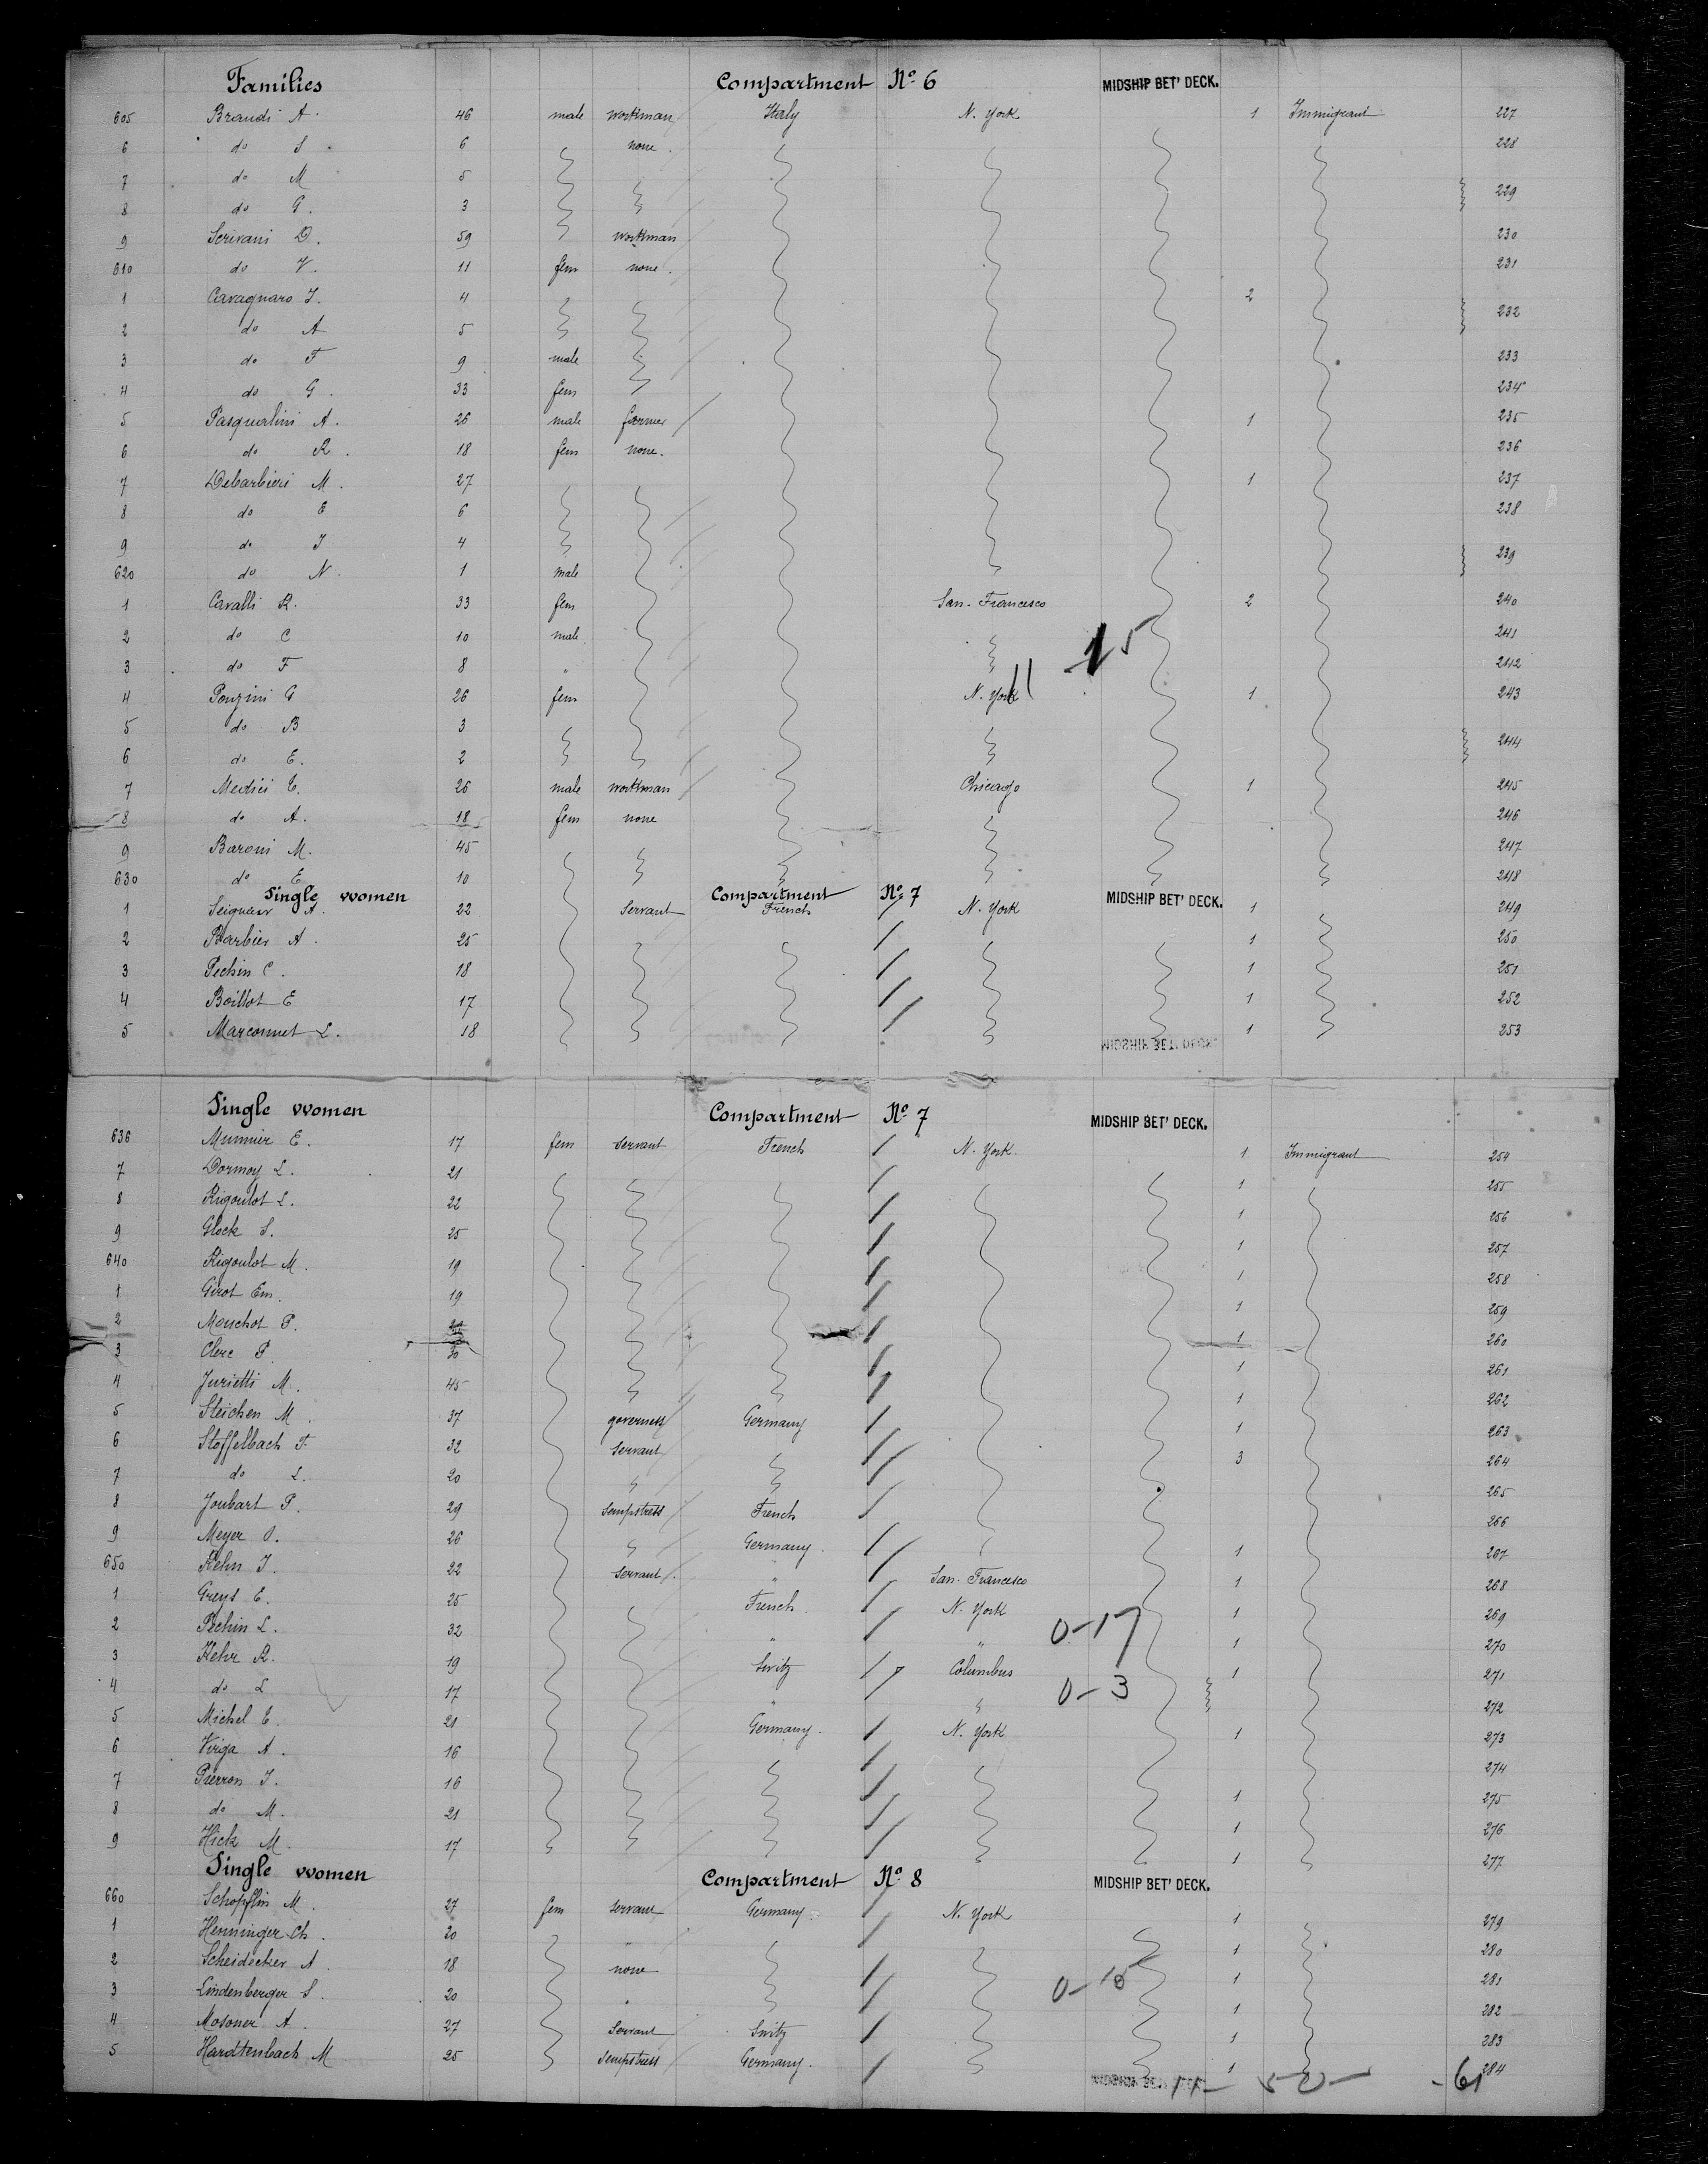 Families Compartment No 6 MIDSHIP BET' DECK.
605 Brandi A. 46 male workman Italy N. York 1 Immigrant 227
6 do S. 6 none. 228
7 do M 5 229
8 do G. 3
9 Scrivani D. 59 workman 230
610 do V. 11 fem none. 231
1 Cavagnaro J. 4 2
2 do A 5 232
3 do F 9 male 233
4 do G. 33 fem 234
5 Pasqualini A. 26 male farmer 1 235
6 do R. 18 fem none. 236
7 Debarbieri M. 27 1 237
8 do E 6 238
9 do J 4 239
620 do N. 1 male
1 Cavalli R. 33 fem San-Francisco 2 240
2 do C 10 male 241
15
3 do F 8 " 242
11
4 Ponzini G 26 fem N. York 1 243
5 do B 3 244
6 do E. 2
7 Medici C. 26 male workman Chicago 1 245
8 do A. 18 fem none 246
9 Baroni M. 45 247
630 do E 10 248
Single women Compartment No 7 MIDSHIP BET' DECK.
1 A. 22 Servant French N. York 1 249
2 Barbier A. 25 1 250
3 Pechin C. 18 1 251
4 Boillot E 17 1 252
5 Marconnet L. 18 1 253
Single women Compartment No 7 MIDSHIP BET' DECK.
636 E. 17 fem servant French N. York. 1 Immigrant 254
7 Dormoy L. 21 1 255
8 Rigoulot L. 22 1 256
9 Glock S. 25 1 257
640 Rigoulot M. 19 1 258
1 Girot Em. 19 1 259
2 Mouchot P. 1 260
3 Clerc P. 30 1 261
4 Jurietti M. 45 1 262
5 Steichen M. 37 governess Germany 1 263
6 Stoffelbach F. 32 servant 3 264
7 do L. 20 265
8 Joubart P. 29 Sempstress French 266
9 Meyer O. 26 Germany. 1 267
650 Kehn J. 22 servant. " San-Francisco 1 268
1 Greys E. 25 French. N. York 1 269
0-17
2 Pechin L. 32 " " 1 270
3 Kehr R. 19 Switz Columbus 1 271
0-3
4 do L 17 " 272
5 Michel E. 21 Germany. N. York 1 273
6 Virga A. 16 274
7 Pierron J. 16 1 275
8 do M. 21 1 276
9 Hick M. 17 1 277
Single women Compartment No 8 MIDSHIP BET' DECK.
660 Schopflin M. 27 fem servant Germany. N. York 1 279
1 Henninger Ch. 20 " 1 280
2 Scheidecker A. 18 none 1 281
3 Lindenberger S. 20 " 1 282
4 Mosoner A. 27 Servant Switz 1 283
5 Hardtenbach M 25 sempstress Germany. 1 284
11- 50- -61